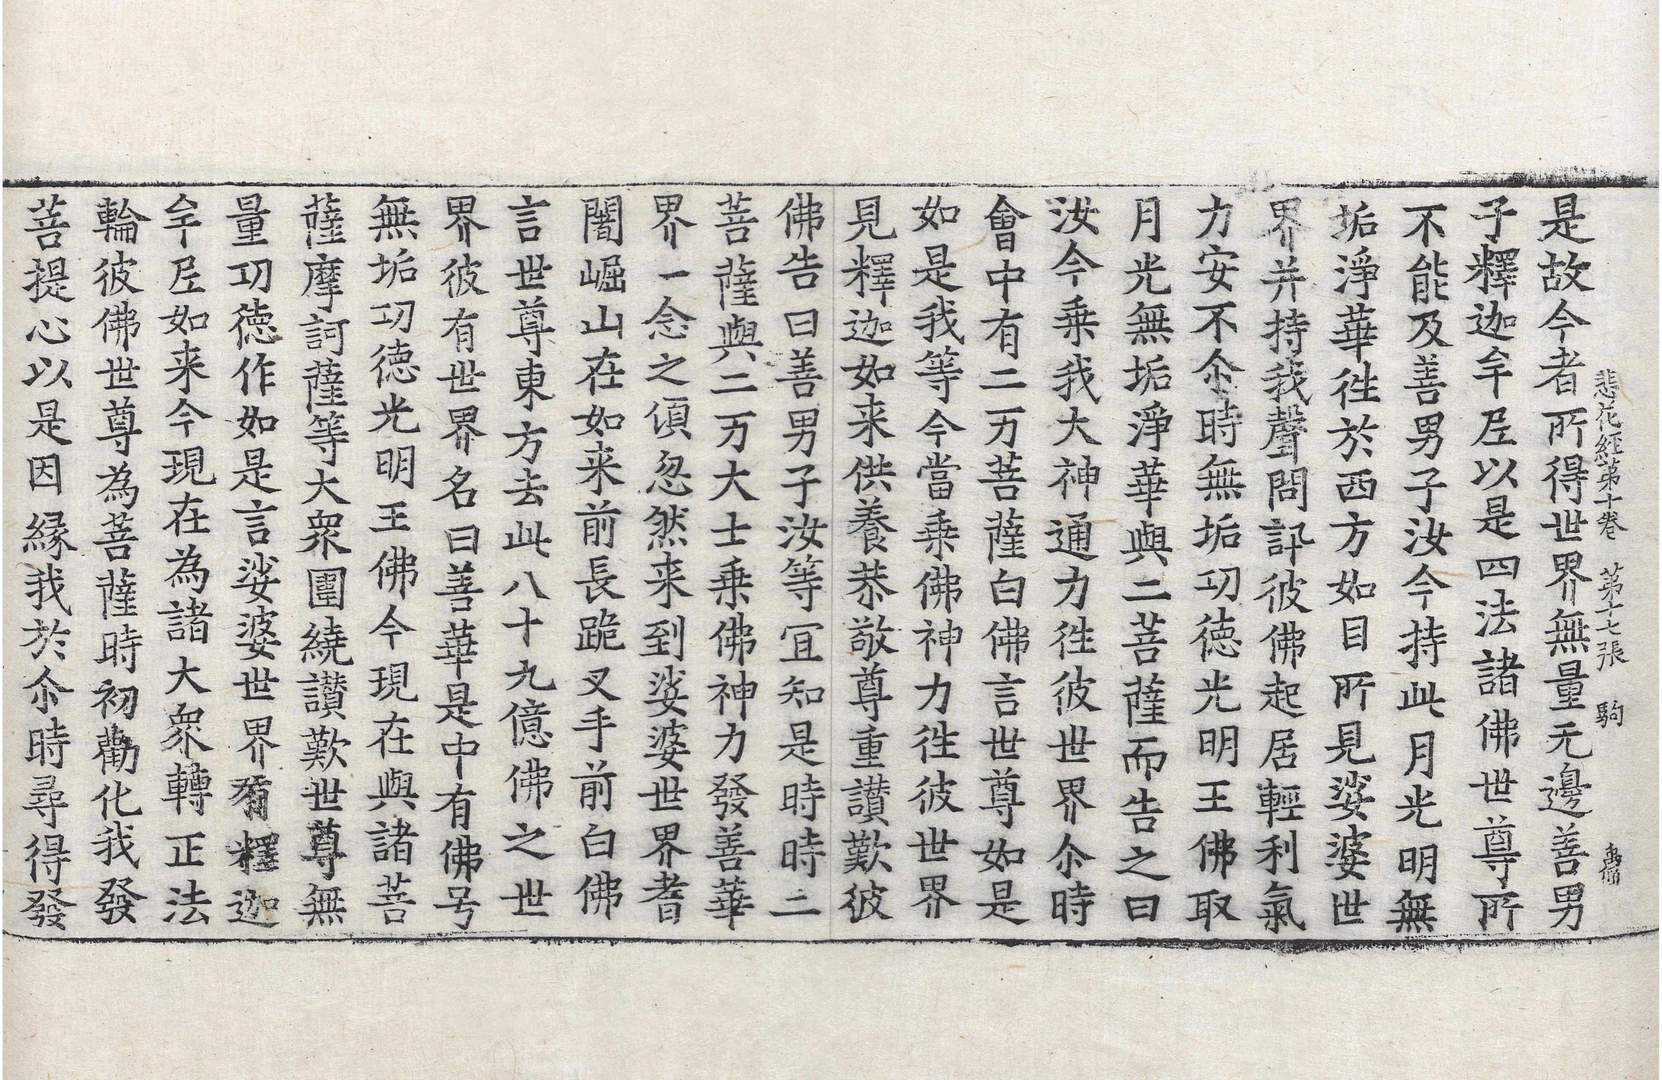 悲花経第十卷 第十七張 駒
是故今者所得世界無量无邊善男
子釋迦牟尼以是四法諸佛世尊所
不能及善男子汝今持此月光明無
垢淨華徃於西方如目所見娑婆世
界并持我聲問訊彼佛起居輕利氣
力安不尒時無垢功徳光明王佛取
月光無垢淨華與二菩薩而告之曰
汝今乗我大神通力徃彼世界尒時
會中有二万菩薩白佛言世尊如是
如是我等今當乗佛神力徃彼世界
見釋迦如来供養恭敬尊重讃歎彼
佛告曰善男子汝等冝知是時時二
菩薩與二万大士乗佛神力發善華
界一念之頃忽然来到娑婆世界耆
闍崛山在如来前長跪叉手前白佛
言世尊東方去此八十九億佛之世
界彼有世界名曰善華是中有佛号
無垢功徳光明王佛今現在與諸菩
薩摩訶薩等大衆圍繞讃歎世尊無
量功徳作如是言娑婆世界有釋迦
牟尼如来今現在為諸大衆轉正法
輪彼佛世尊為菩薩時初勸化我發
菩提心以是因縁我於尒時尋得發